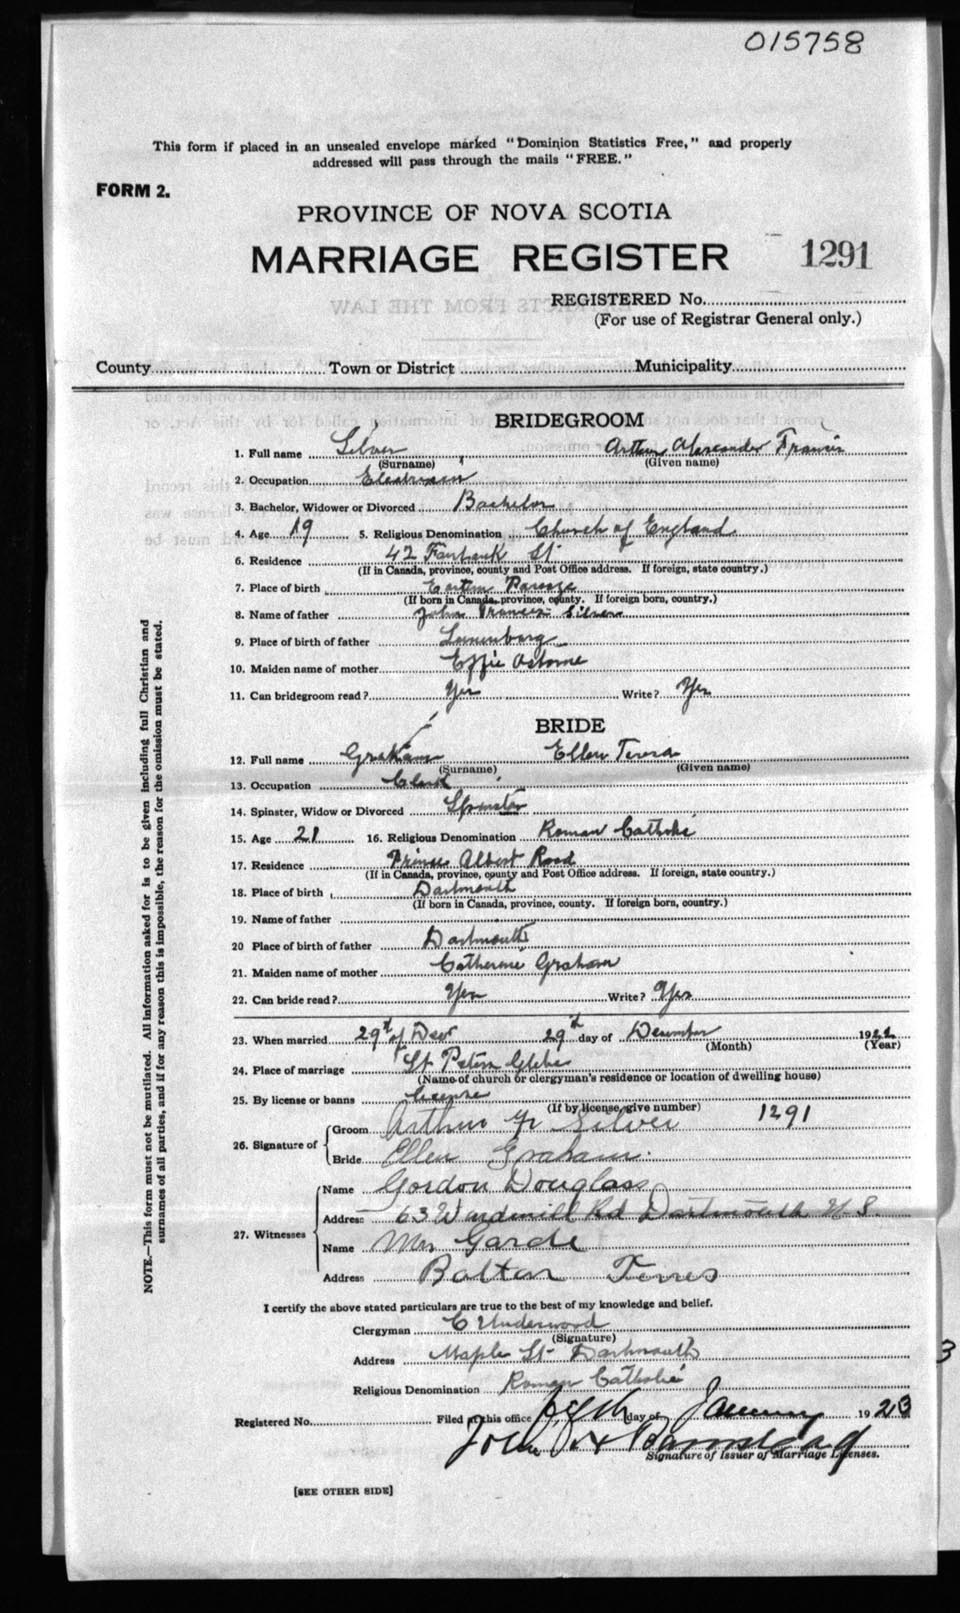 015758
This form if placed in an unsealed envelope marked "Dominion Statistics Free," and properly
addressed will pass through the mails "FREE."
FORM 2.
PROVINCE OF NOVA SCOTIA
MARRIAGE REGISTER 1291
REGISTERED No.
(For use of Registrar General only.)
County Town or District Municipality
BRIDEGROOM
1. Full name Silver Arthur Alexander Francis
(Surname) (Given name)
2. Occupation Electrician
3. Bachelor, Widower or Divorced Bachelor
4. Age 19 5. Religious Denomination Church of England
6. Residence 42 Fairbank St
(If in Canada, province, county and Post Office address. If foreign, state country.)
7. Place of birth Eastern Passage
(If born in Canada, province, county. If foreign born, country.)
8. Name of father John Francis Silver
9. Place of birth of father Lunenburg
10. Maiden name of mother Effie Osborne
11. Can bridegroom read? Yes Write? Yes
BRIDE
12. Full name Graham Ellen Teresa
(Surname) (Given name)
13. Occupation Clerk
14. Spinster, Widow or Divorced Spinster
15. Age 21 16. Religious Denomination Roman Catholic
17. Residence Prince Albert Road
(If in Canada, province, county and Post Office address. If foreign, state country.)
18. Place of birth Dartmouth
(If born in Canada, province, county. If foreign born, country.)
19. Name of father
20 Place of birth of father Dartmouth
21. Maiden name of mother Catherine Graham
22. Can bride read? Yes Write? Yes
23. When married 29th of Dec 29th day of December 1922
(Month) (Year)
24. Place of marriage St Peters Glebe
(Name of church or clergyman's residence or location of dwelling house)
25. By license or banns License
(If by license, give number) 1291
26. Signature of Groom Arthur Silver
Bride Ellen Graham.
27. Witnesses Name Gordon Douglass
Address 63 Windmill Rd Dartmouth N S.
Name Mrs Garde
Address Bolton Terres
I certify the above stated particulars are true to the best of my knowledge and belief.
Clergyman C Underwood
(Signature)
Address Maple St Dartmouth
Religious Denomination Roman Catholic
Registered No. Filed at this office day of January 1923
John
Signature of Issuer of Marriage Licenses.
[SEE OTHER SIDE]
NOTE.—This form must not be mutilated. All information asked for is to be given including full Christian and
surnames of all parties, and if for any reason this is impossible, the reason for the omission must be stated.
3